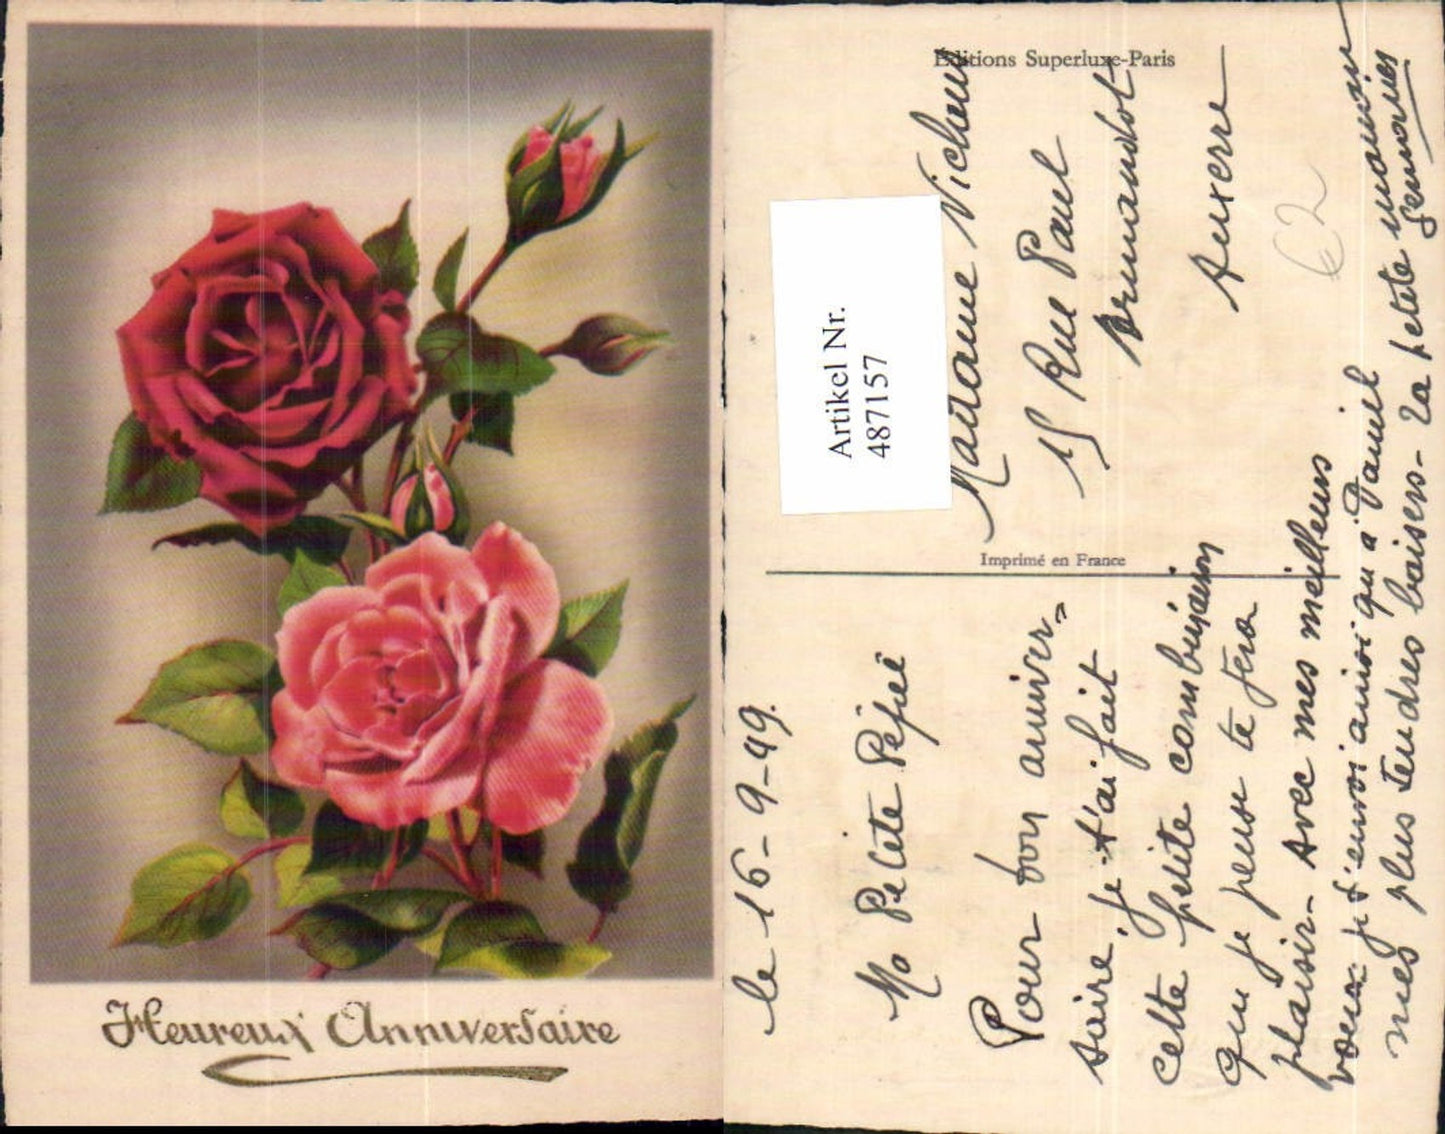 Heureux Anniversaire
Editions Superluxe-Paris
Artikel Nr.
487157
Madame
15 Rue Paul
Armandot
Auxerre
€2
Imprimé en France
le 16-9-49.
Ma Petite Pépée
Pour ton anniver=
saire, je t'ai fait
cette petite combinaison
qui je pense te fera
plaisir- Avec mes meilleurs
voeux je t'envoi ainsi qu'à Daniel
mes plus tendres baisers- La petite maman